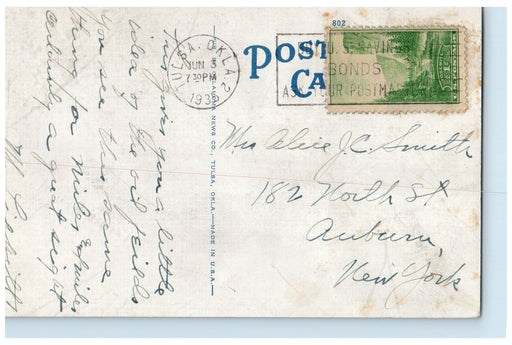 802
POST
CA
TULSA, OKLA.
JUN 3
7 30 PM
193
U.S. SAVINGS
BONDS
ASK YOUR POSTMASTER
NEWS CO., TULSA, OKLA.—MADE IN U.S.A.
Mrs Alice J.C. Smith
182 North St
Auburn,
New York
This gives you a little
idea of the oil feilds
you see this same
thing for miles & miles
certainly a great sight
M.